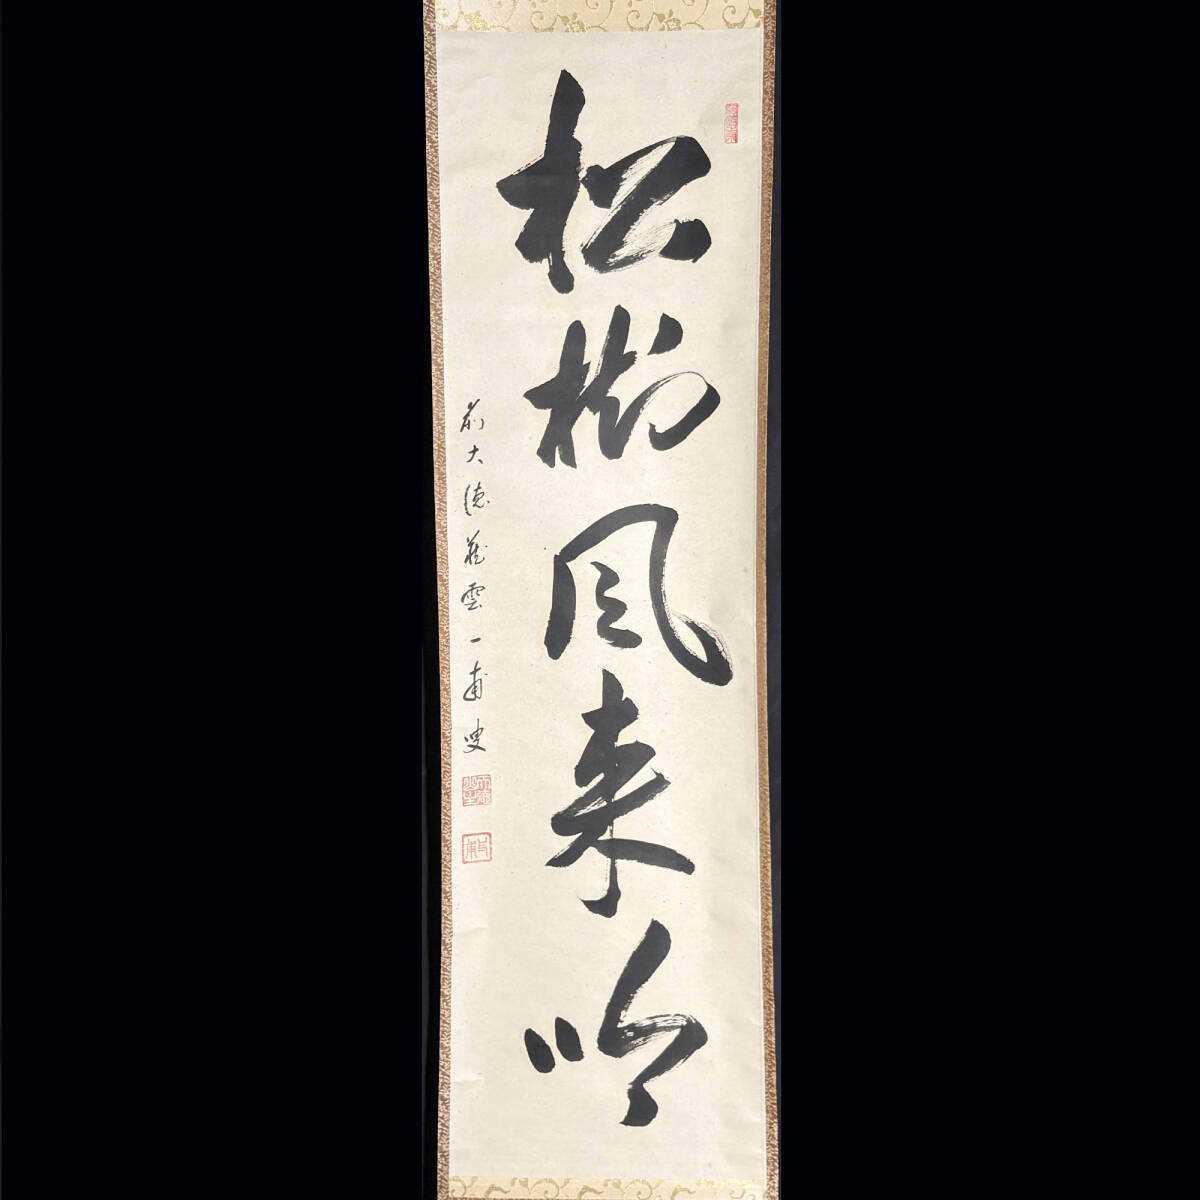 松樹風来吟
前大徳藏雲一甫叟